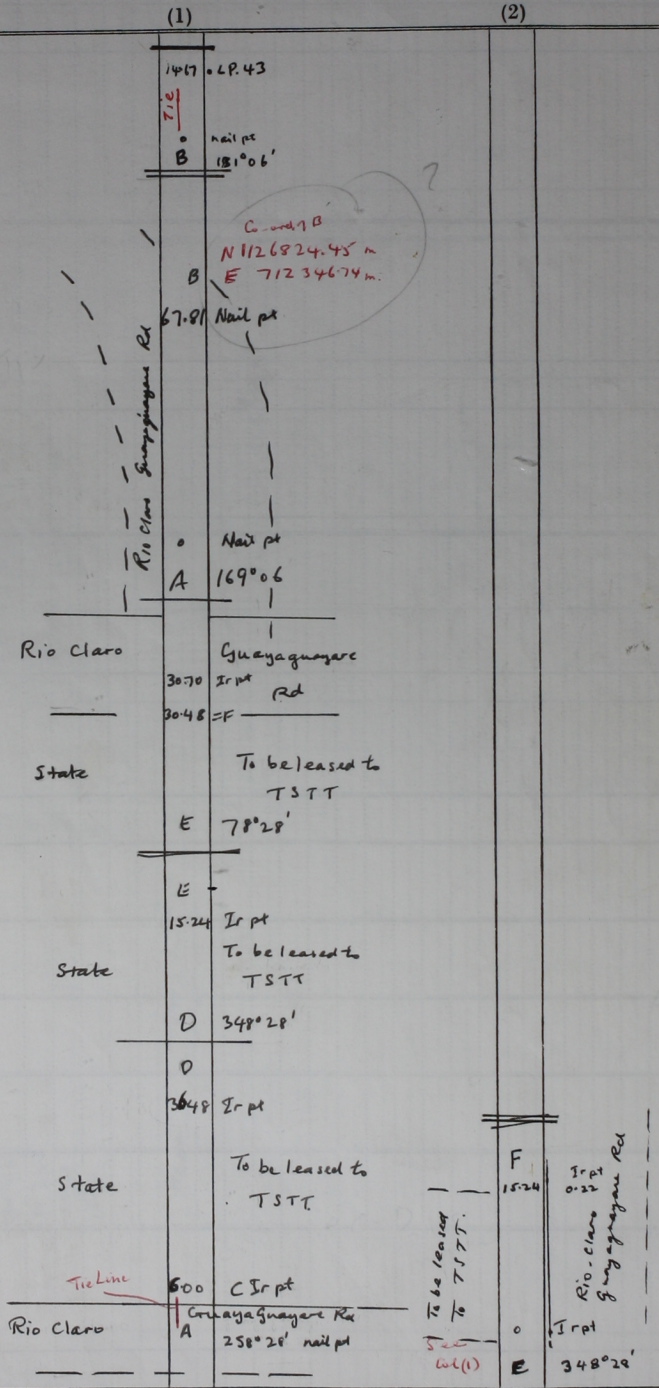 (1)
1417 • LP.43
Tie
nail pt
B 181°06'
?
Co-ord of B
N 1126824.45 m
B E 712346.74 m.
67.81 Nail pt
Rio Claro Guayaguayare Rd
Nail pt
A 169°06
Rio Claro Guayaguayare
30.70 Ir pt
Rd
30.48 =F
State
To be leased to
TSTT
E 78°28'
E
15.24 Ir pt
To be leased to
State
TSTT
D 348°28'
D
3648 Ir pt
To be leased to
State
TSTT
6.00 C Ir pt
Tie Line
Guayaguayare Rd
Rio Claro
A 258°28' nail pt
(2)
F
Ir pt
15.24 0.22
To be leased
To TSTT.
Rio-Claro
Guayaguayare Rd
Ir pt
See
Col(1)
E 348°28'